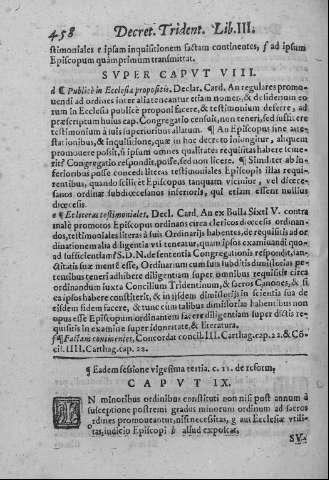 458 Decret. Trident. Lib. III.
stimoniales e ipsam inquisitionem factam continentes, f ad ipsum
Episcopum quàm primùm transmittat.
SUPER CAPUT VIII.
d ¶ Publicè in Ecclesia propositis. Declar. Card. An regulares promo-
uendi ad ordines inter alia teneantur etiam nomen, & desiderium eo
rum in Ecclesia publicè proponi facere, & testimonium deferre, ad
præscriptum huius cap. Congregatio censuit, non teneri, sed sufficere
testimonium à suis superioribus allatum. ¶ An Episcopus sine atte-
stationibus, & inquisitione, quæ in hoc decreto iniungitur, aliquem
promouere possit, si ipsum omnes qualitates requisitas habere iouerit?
Congregatio respondit, posse, sed non licere. ¶ Similiter ab in-
ferioribus posse concedi literas testimoniales Episcopis illas requi-
rentibus, quando scilicet Episcopus tanquam vicinior, vel diœce-
sanos ordinat subdiœcelanos inferioris, qui etiam esset nullius
diœcesis.
e ¶ Et literas testimoniales. Decl. Card. An ex Bulla Sixti V. contra
malè promotos Episcopus ordinans circa clericos diœcesis ordinan-
dos, testimoniales literas à suis Ordinarijs habentes, de requisitis ad or
dinationem alia diligentia vti teneatur, quàm ipsos examinandi quo-
ad sufficientiam? S.D.N. de sententia Congregationis respondit, san-
ctitatis suæ mentē esse, Ordinarium cum suis subditis dimissorias pe-
tentibus teneri adhibere diligentiam super omnibus requisitis circa
ordinandum iuxta Concilium Tridentinum, & sacros Canones, & si
ea ipsos habere constiterit, & in ijsdem dimissorijs in scientia sua de
eisdem fidem facere, & tunc cum talibus dimissorijs habentibus non
opus esse Episcopum ordinantem facere diligentiam super dictis re-
quisitis in examine super idoneitate, & literatura.
f ¶ Factam continentes, Concordat concil. IIII. Carthag. cap. 22. & Cō-
cil. IIII. Carthag. cap. 22.
¶ Eadem sessione vigesima tertia. c. 11. de reform.
CAPUT IX.
IN minoribus ordinibus constituti non nisi post annum à
susceptione postremi gradus minorum ordinum ad sacros
ordines promoueantur, nisi necessitas, g aut Ecclesiæ vtili-
tas, iudicio Episcopi h aliud exposcat.
SV-